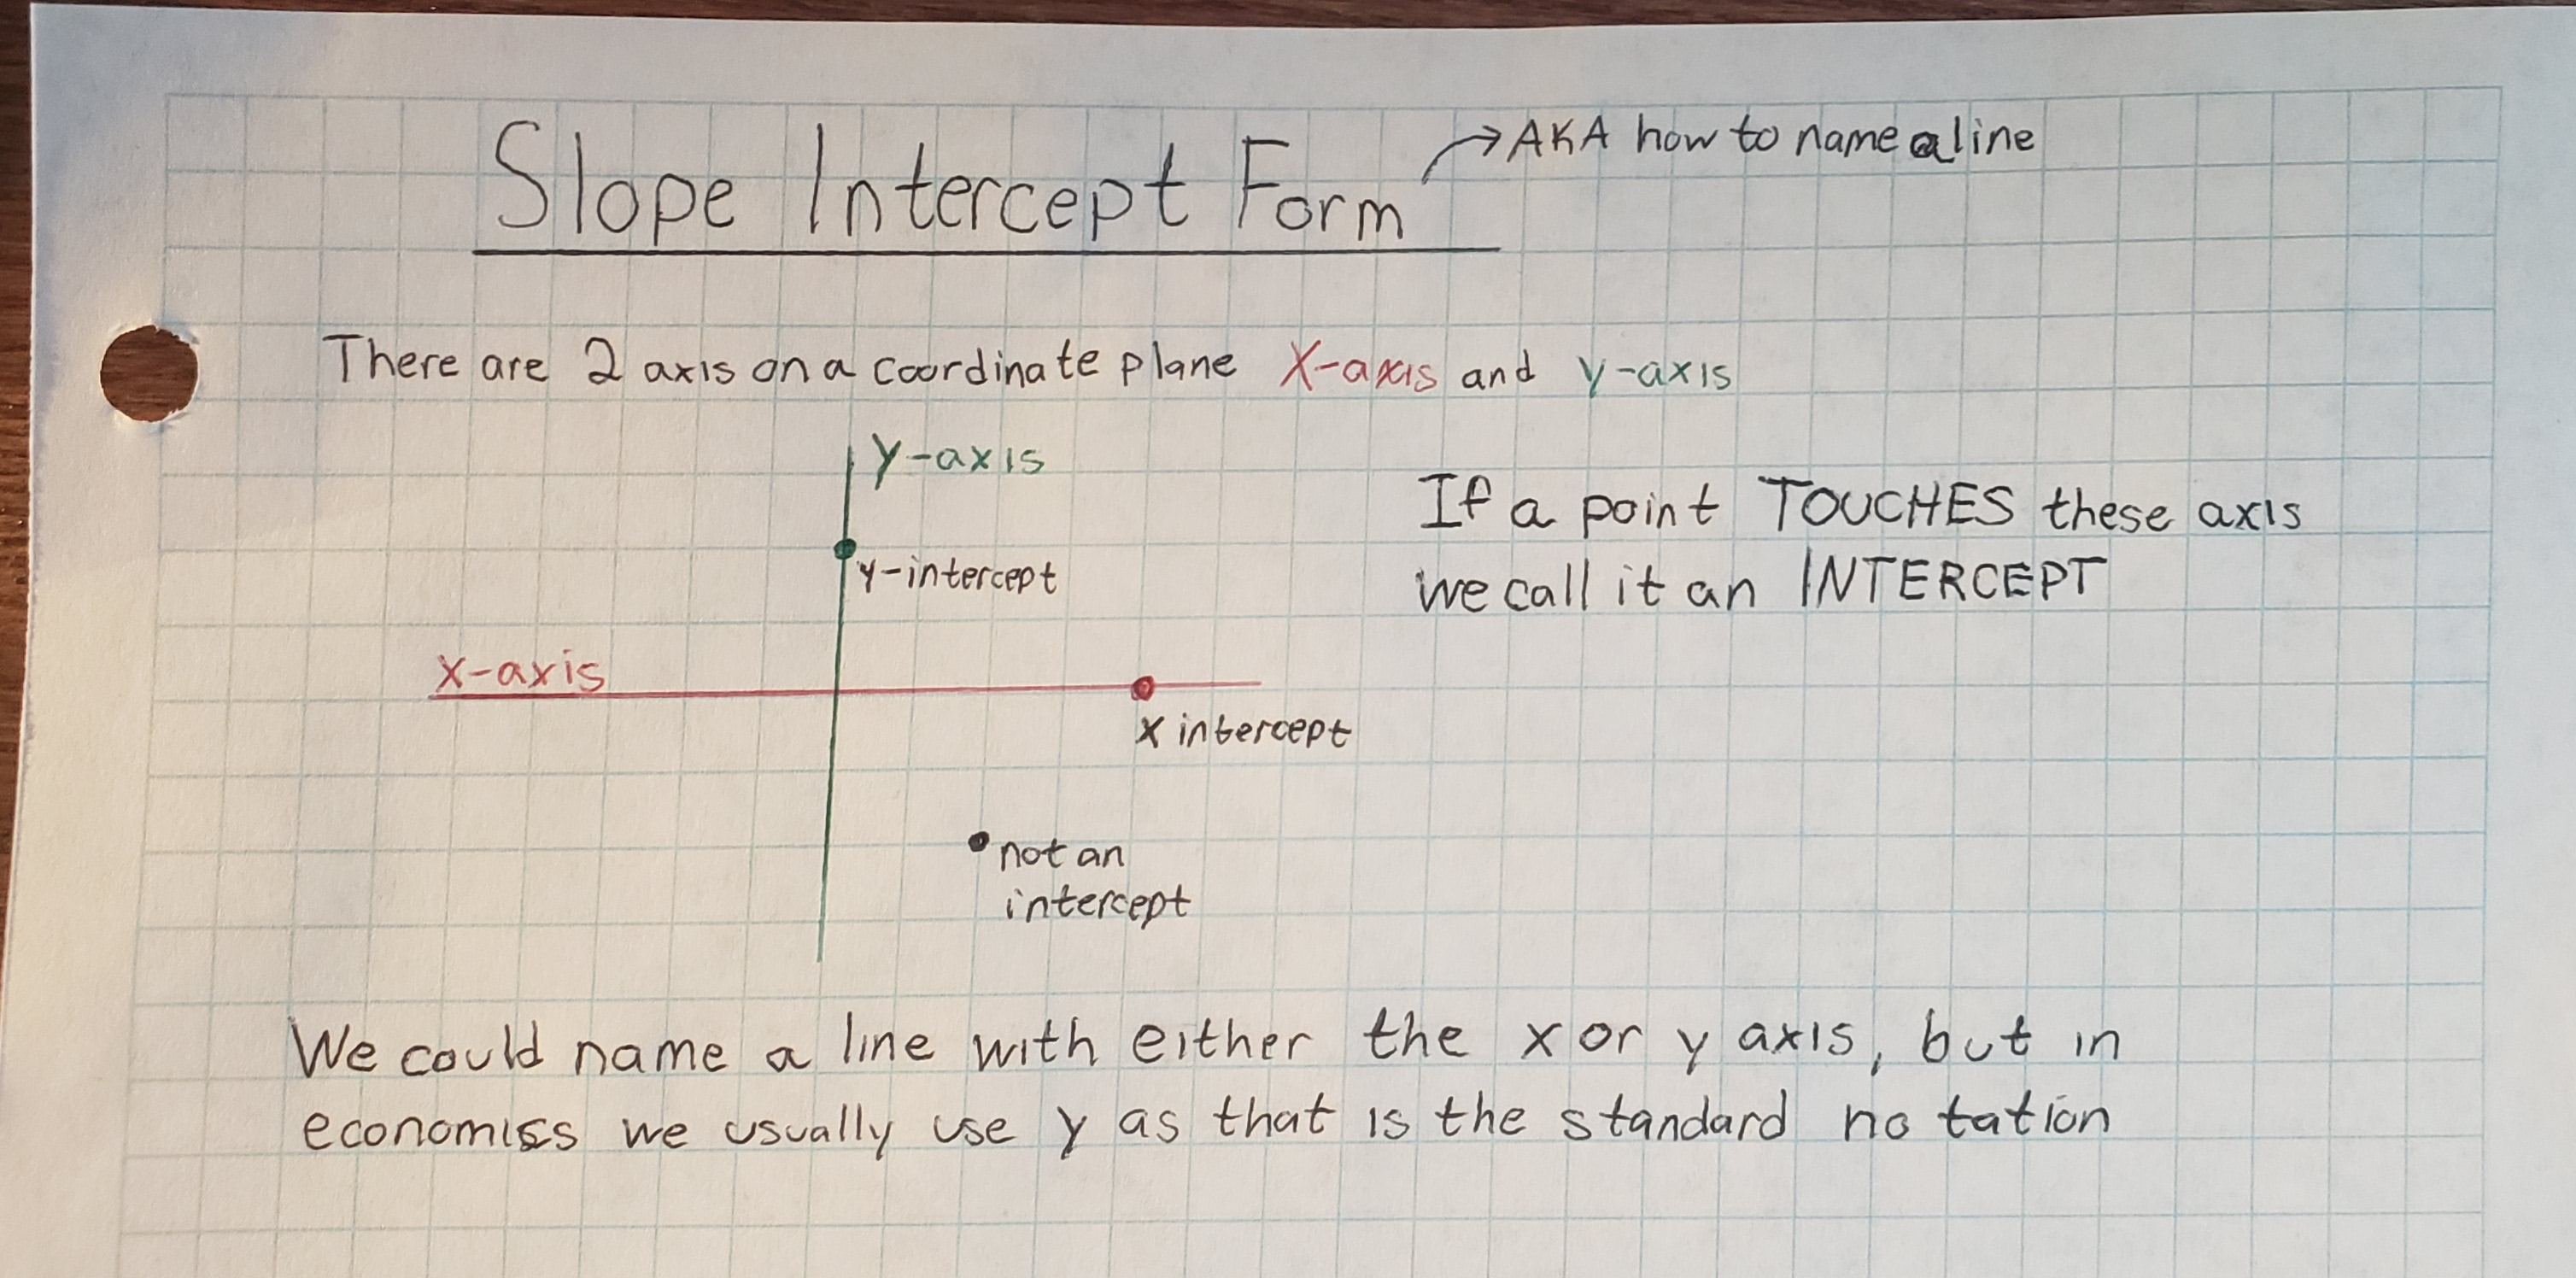 Slope Intercept Form
AKA how to name a line
There are 2 axis on a coordinate plane X-axis and y-axis
y-axis
If a point TOUCHES these axis
y-intercept
we call it an INTERCEPT
x-axis
x intercept
not an
intercept
We could name a line with either the x or y axis, but in
economiss we usually use y as that is the standard notation